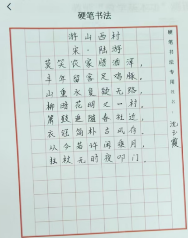 硬笔书法
游山西村
宋·陆游
莫笑农家腊酒浑，
丰年留客足鸡豚。
山重水复疑无路，
柳暗花明又一村。
箫鼓追随春社近，
衣冠简朴古风存。
从今若许闲乘月，
拄杖无时夜叩门。
硬笔书法专用